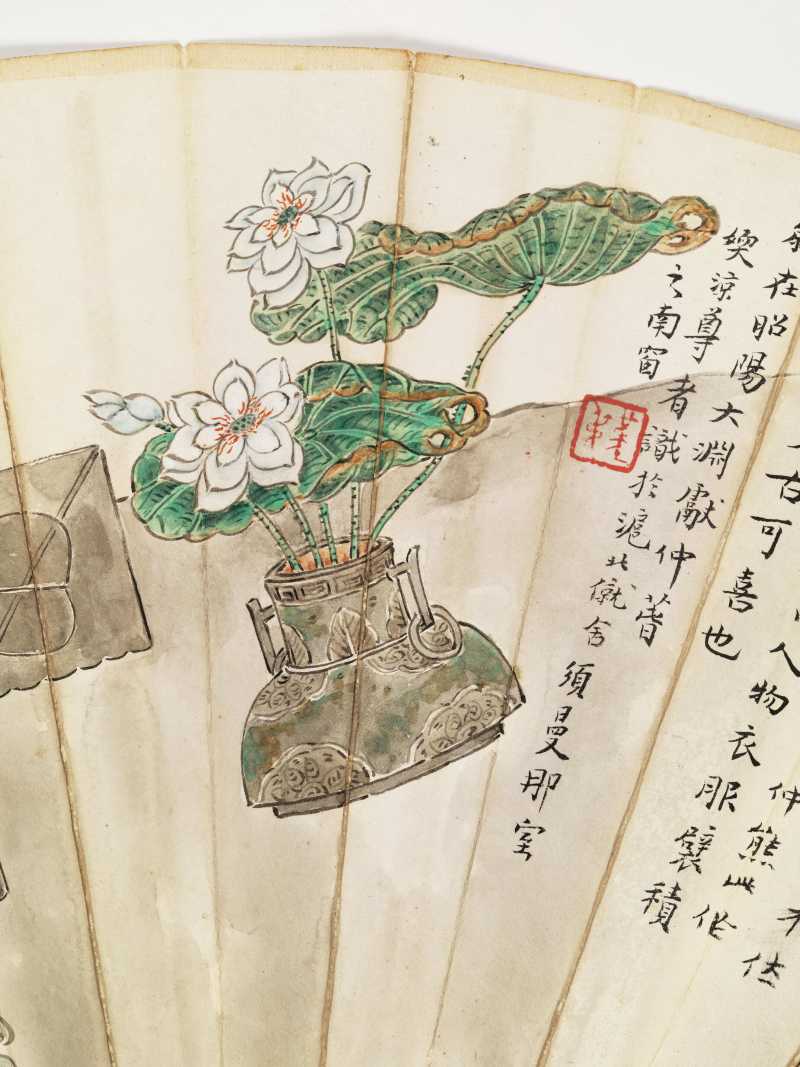 仲熊此作
人物衣服襞積
古可喜也
在昭陽大淵獻仲
媆涼尊者識於滬北僦舍須曼那室
之南窗